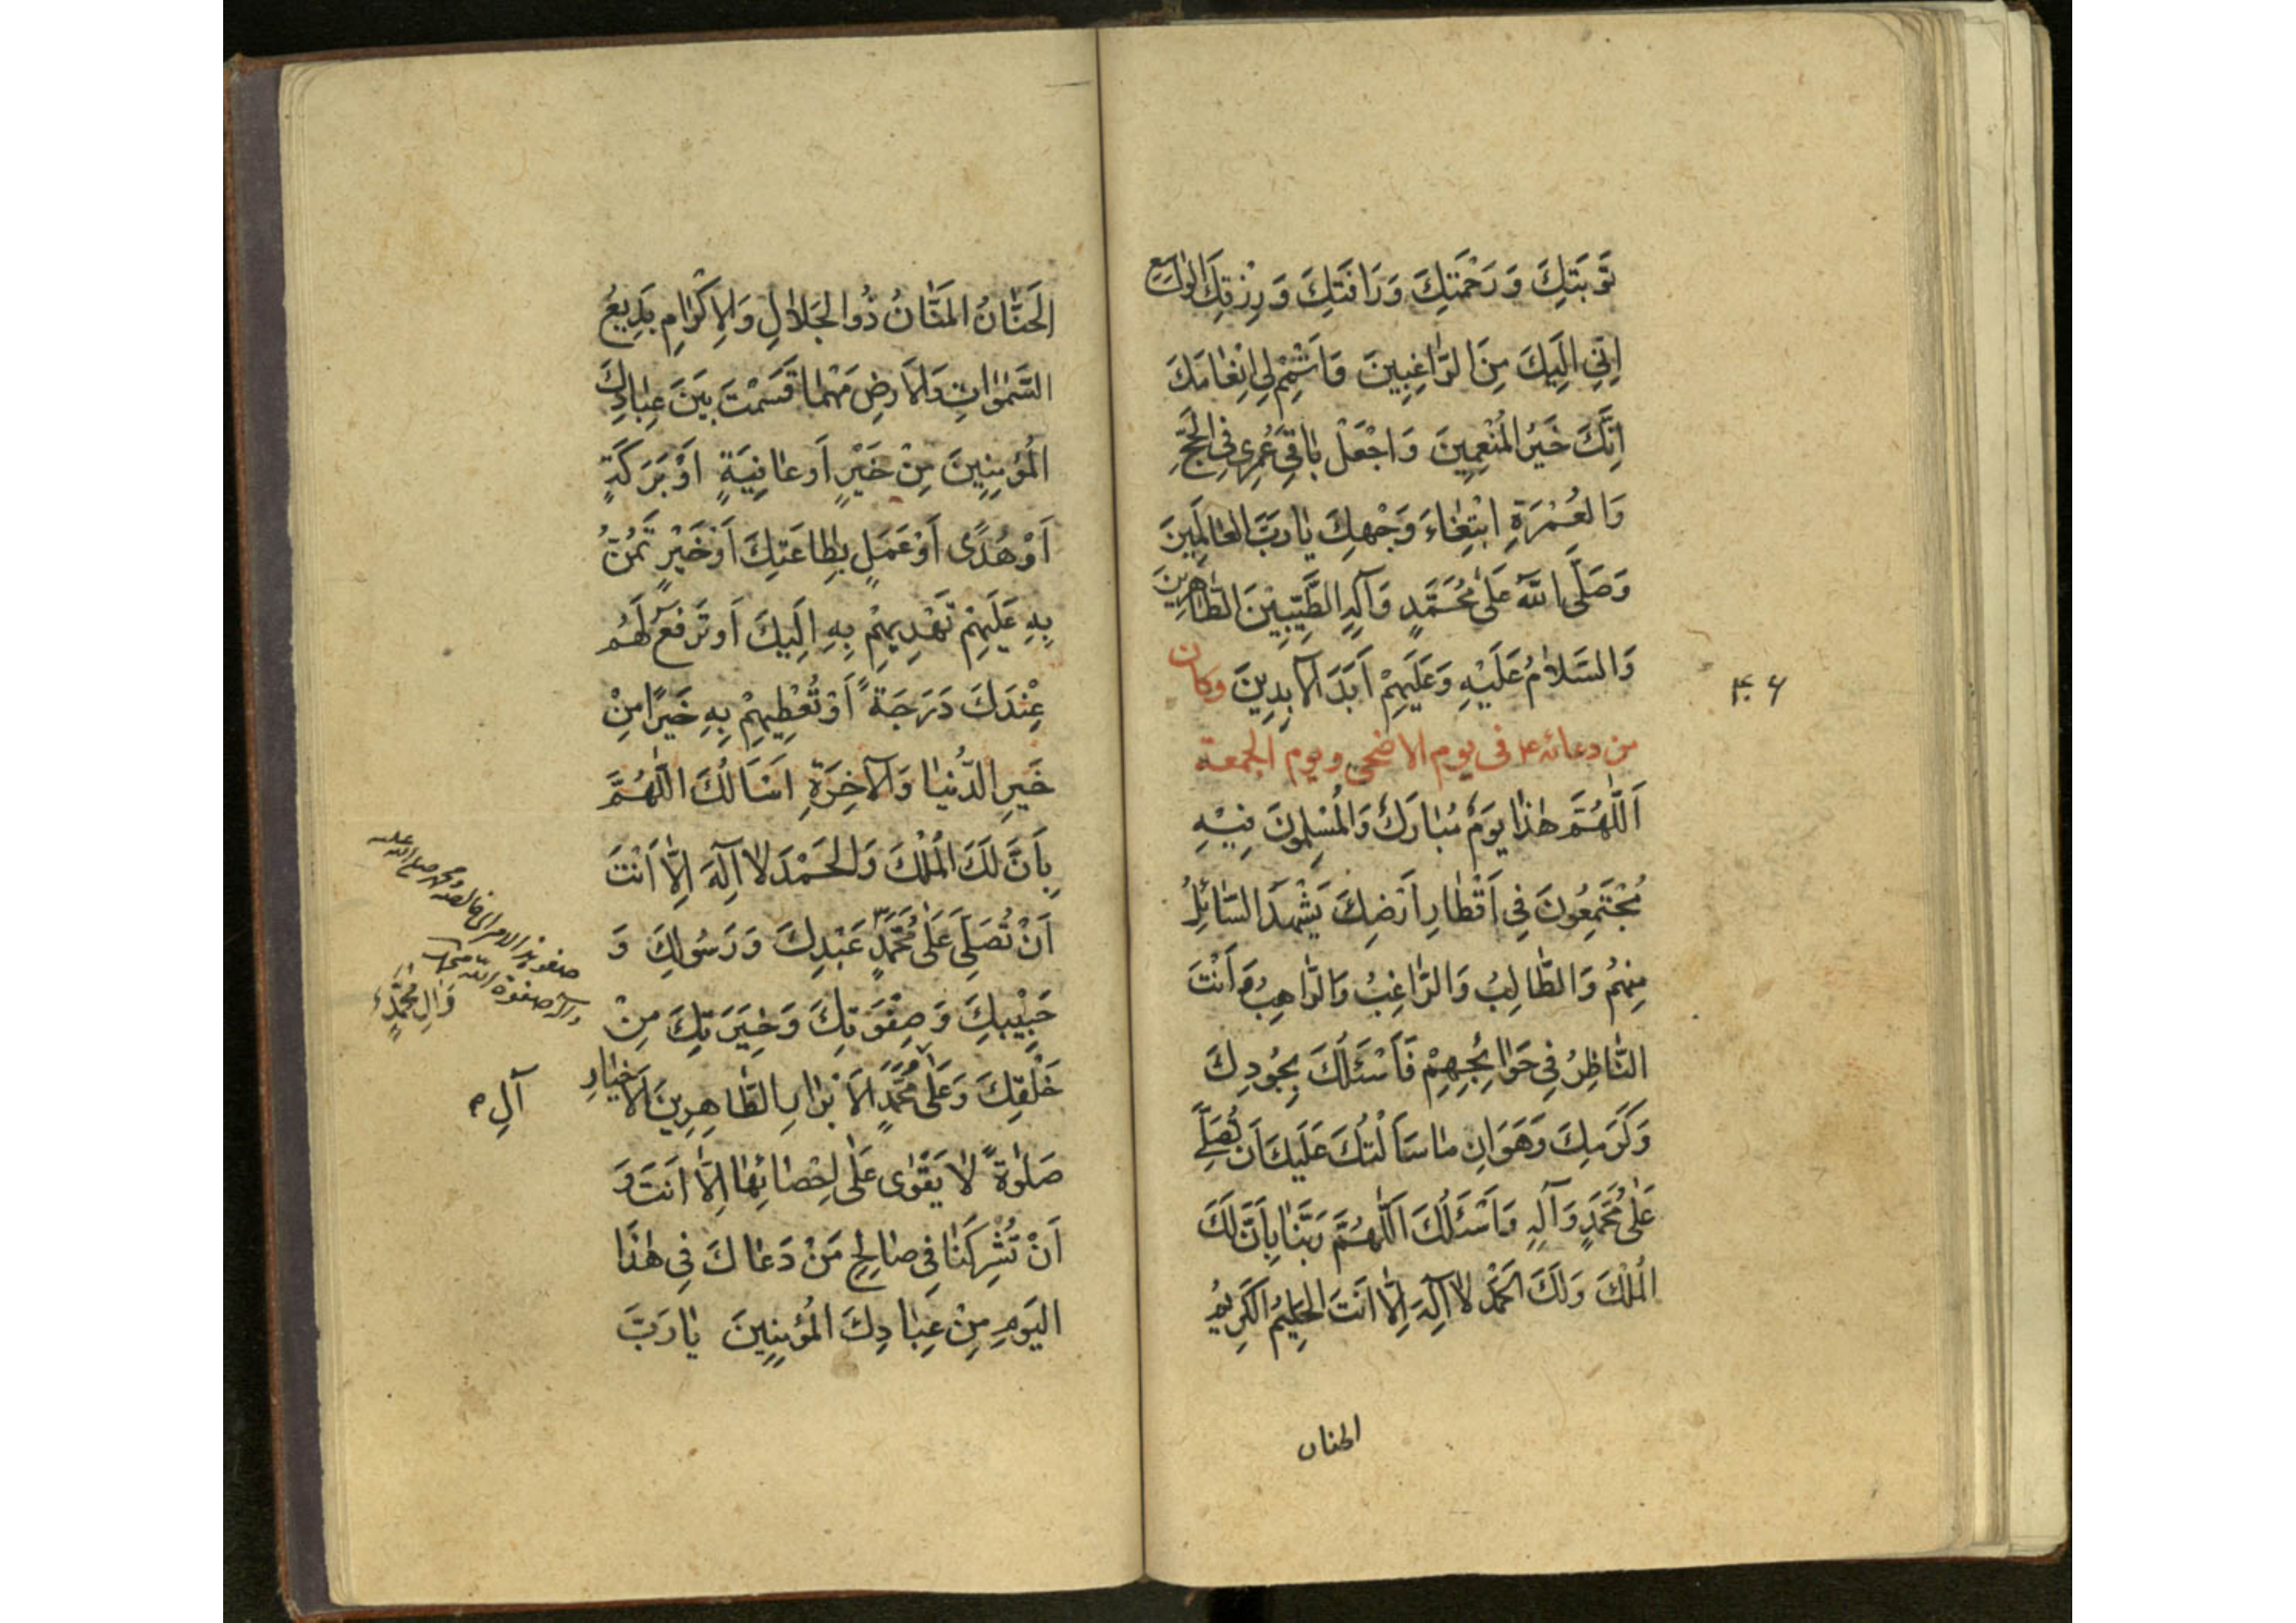 تَوْبَتِكَ وَرَحْمَتِكَ وَرَافَتِكَ وَرِزْقِكَ الْوٰاسِعِ
اِنِّي اِلَيْكَ مِنَ الرّٰاغِبِينَ وَاَتْمِمْ لِي اِنْعٰامَكَ
اِنَّكَ خَيْرُ الْمُنْعِمِينَ وَاجْعَلْ بٰاقِيَ عُمْرِي فِي الْحَجِّ
وَالْعُمْرَةِ ابْتِغٰاءَ وَجْهِكَ يٰا رَبَّ الْعٰالَمِينَ
وَصَلَّى اللّٰهُ عَلٰى مُحَمَّدٍ وَآلِهِ الطَّيِّبِينَ الطّٰاهِرِينَ
وَالسَّلٰامُ عَلَيْهِ وَعَلَيْهِمْ اَبَدَ الْآبِدِينَ وكان
۴۰۶
من دعائه ع في يوم الاضحى ويوم الجمعة
اَللّٰهُمَّ هٰذٰا يَوْمٌ مُبٰارَكٌ وَالْمُسْلِمُونَ فِيْهِ
مُجْتَمِعُونَ فِي اَقْطٰارِ اَرْضِكَ يَشْهَدُ السّٰائِلُ
مِنْهُمْ وَالطّٰالِبُ وَالرّٰاغِبُ وَالرّٰاهِبُ وَاَنْتَ
النّٰاظِرُ فِي حَوٰائِجِهِمْ فَاَسْئَلُكَ بِجُودِكَ
وَكَرَمِكَ وَهَوَانِ مٰا سَاَلْتُكَ عَلَيْكَ اَنْ تُصَلِّيَ
عَلٰى مُحَمَّدٍ وَآلِهِ وَاَسْئَلُكَ اَللّٰهُمَّ رَبَّنٰا بِاَنَّ لَكَ
الْمُلْكَ وَلَكَ الْحَمْدُ لٰا اِلٰهَ اِلّٰا اَنْتَ الْحَلِيمُ الْكَرِيمُ
الحنان
الْحَنّٰانُ الْمَنّٰانُ ذُو الْجَلٰالِ وَالْاِكْرٰامِ بَدِيعُ
السَّمٰوٰاتِ وَالْاَرْضِ مَهْمٰا قَسَمْتَ بَيْنَ عِبٰادِكَ
الْمُؤْمِنِينَ مِنْ خَيْرٍ اَوْ عٰافِيَةٍ اَوْ بَرَكَةٍ
اَوْ هُدًى اَوْ عَمَلٍ بِطٰاعَتِكَ اَوْ خَيْرٍ تَمُنُّ
بِهِ عَلَيْهِمْ تَهْدِيهِمْ بِهِ اِلَيْكَ اَوْ تَرْفَعُ لَهُمْ
عِنْدَكَ دَرَجَةً اَوْ تُعْطِيهِمْ بِهِ خَيْرًا مِنْ
خَيْرِ الدُّنْيٰا وَالْآخِرَةِ اَسْاَلُكَ اللّٰهُمَّ
بِاَنَّ لَكَ الْمُلْكَ وَالْحَمْدَ لٰا اِلٰهَ اِلّٰا اَنْتَ
اَنْ تُصَلِّيَ عَلٰى مُحَمَّدٍ عَبْدِكَ وَرَسُولِكَ وَ
حَبِيْبِكَ وَصِفْوَتِكَ وَخِيَرَتِكَ مِنْ
وَآلِ مُحَمَّدٍ
خَلْقِكَ وَعَلٰى مُحَمَّدٍ الْاَبْرٰارِ الطّٰاهِرِينَ الْاَخْيٰارِ
آلِ
صَلٰوةً لٰا يَقْوٰى عَلٰى اِحْصٰائِهٰا اِلّٰا اَنْتَ وَ
اَنْ تُشْرِكَنٰا فِي صٰالِحِ مَنْ دَعٰاكَ فِي هٰذَا
الْيَوْمِ مِنْ عِبٰادِكَ الْمُؤْمِنِينَ يٰا رَبَّ